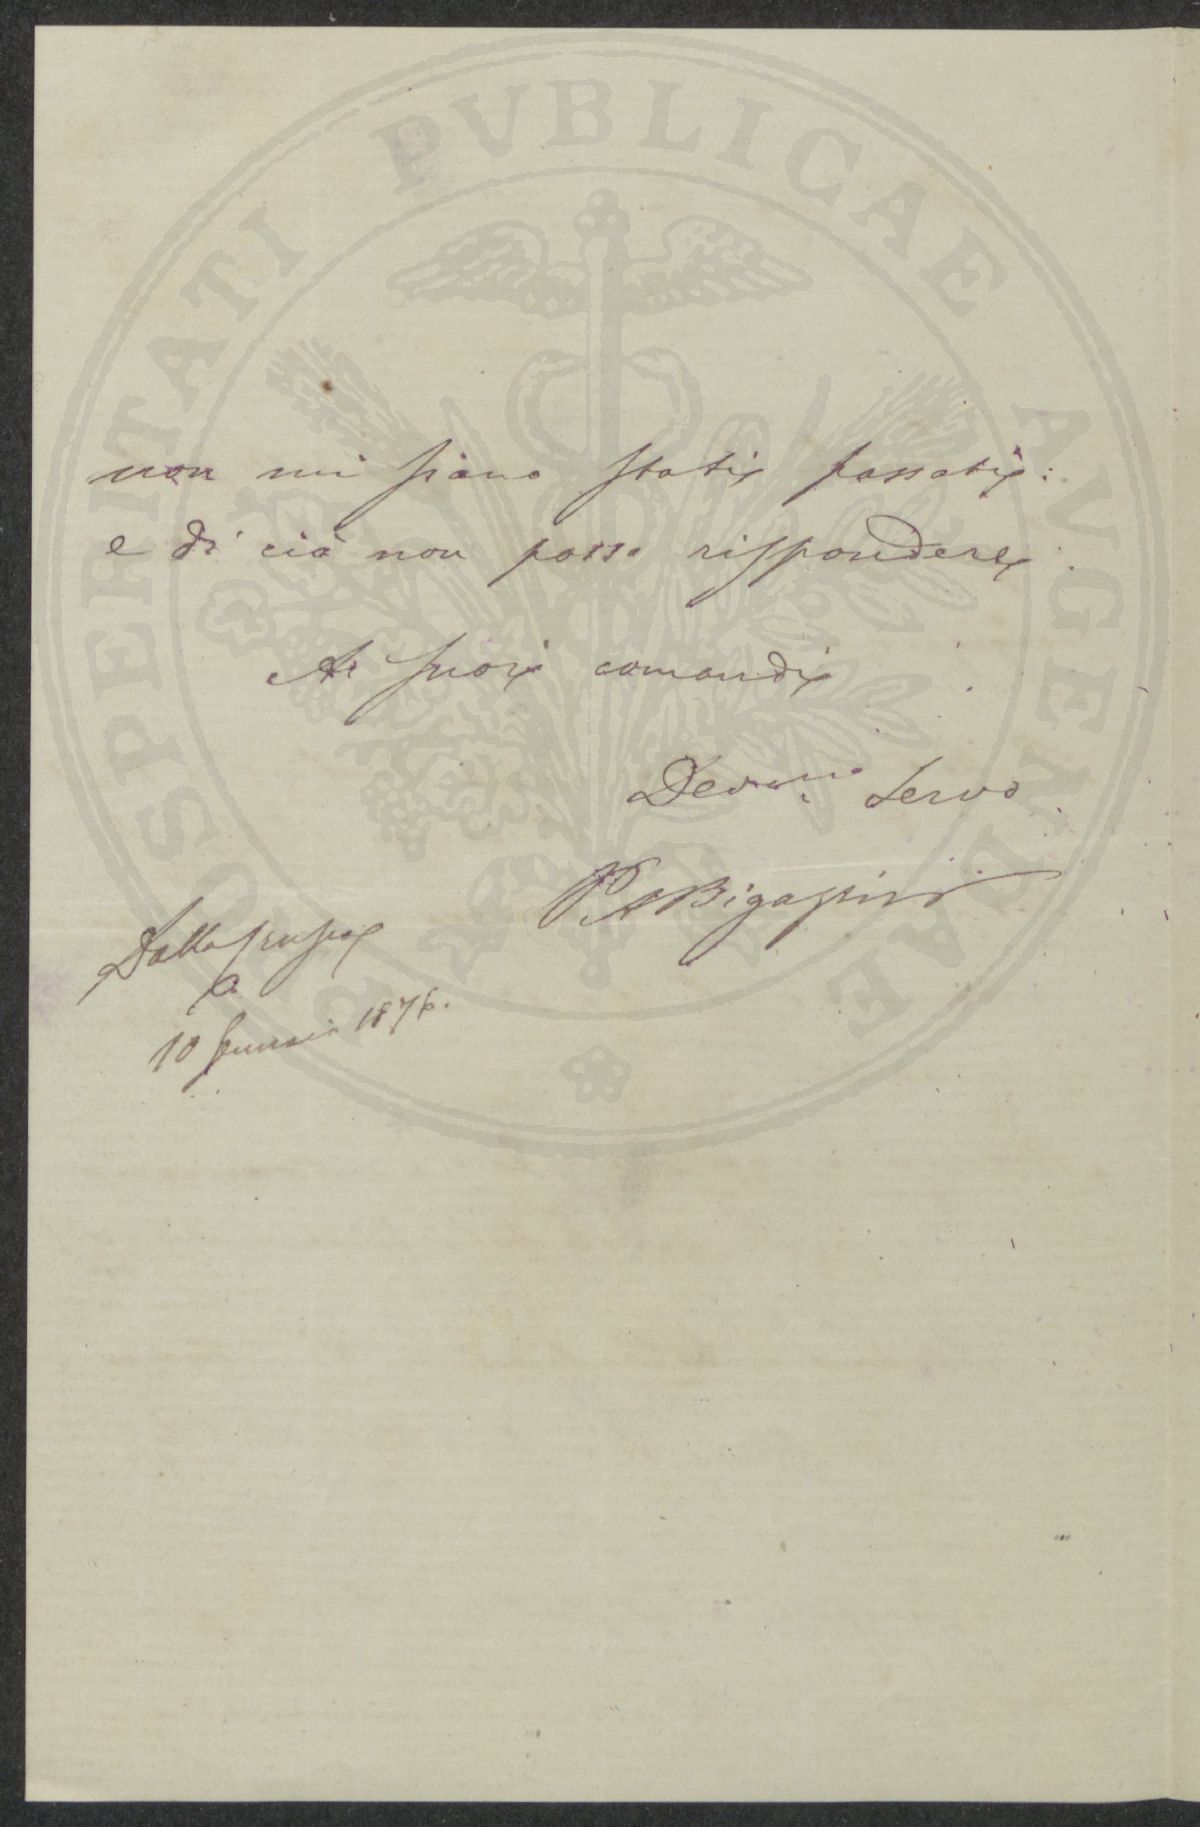 non mi siano stati passati:
e di ciò non posso risspondere
Ai suoi comandi
Dev.mo Servo
Dalla
a
10 Gennaio 1876.
PROSPERITATI PVBLICAE AVGENDAE